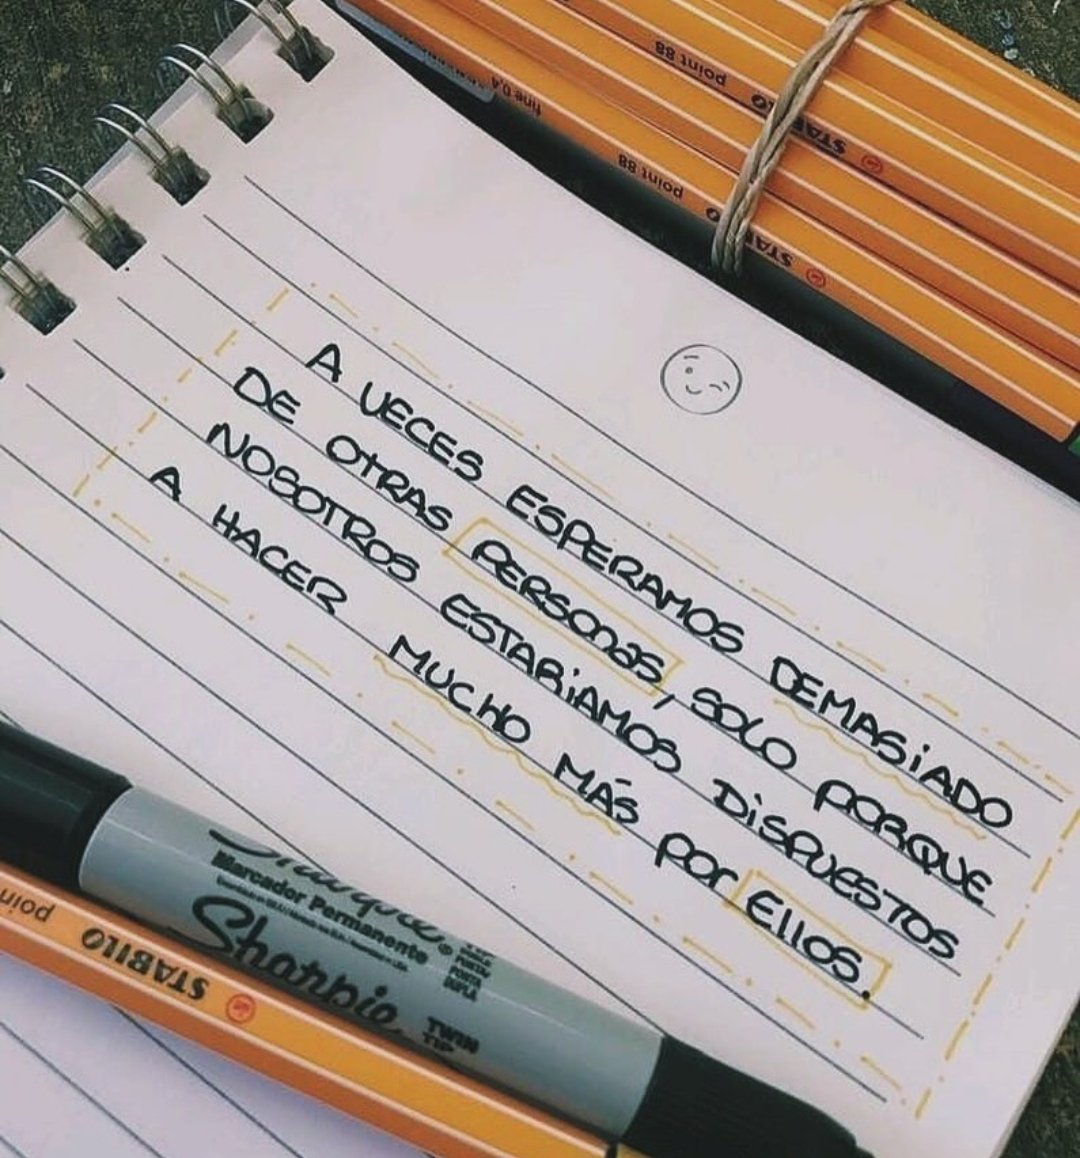 point 88 STABILO
fine 0,4
point 88 STABILO
A VECES ESPERAMOS DEMASiADO
DE OTRAS PERSONAS, SOLO PORQUE
NOSOTROS ESTARiAMOS DiSPUESTOS
A HACER MUCHO MÁS POR EllOS.
Sharpie
Marcador Permanente
Sharpie TWIN TIP
point STABILO